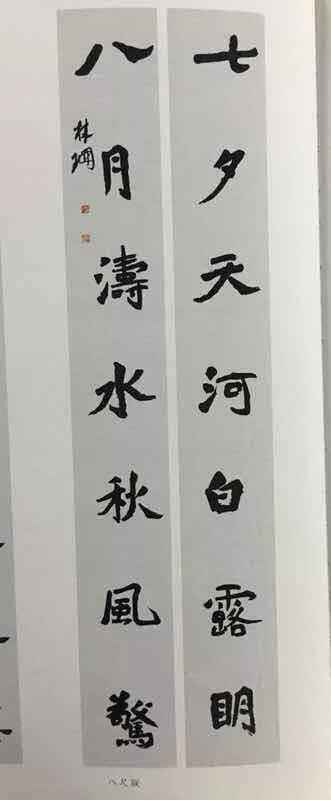 七夕天河白露明
八月濤水秋風驚
林琍
八尺联